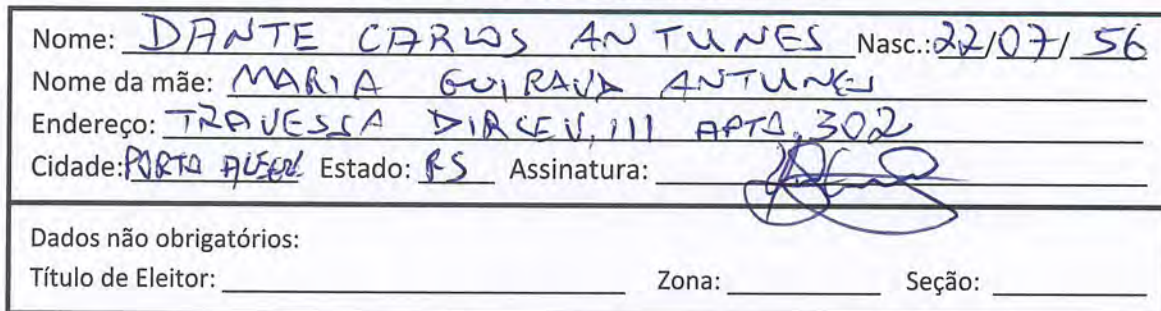 Nome: DANTE CARLOS ANTUNES Nasc.: 22/07/56
Nome da mãe: MARIA GUIRAVA ANTUNES
Endereço: TRAVESSA DIRCEU, 111 APTO, 302
Cidade: PORTO ALEGRE Estado: RS Assinatura:
Dados não obrigatórios:
Título de Eleitor: Zona: Seção: